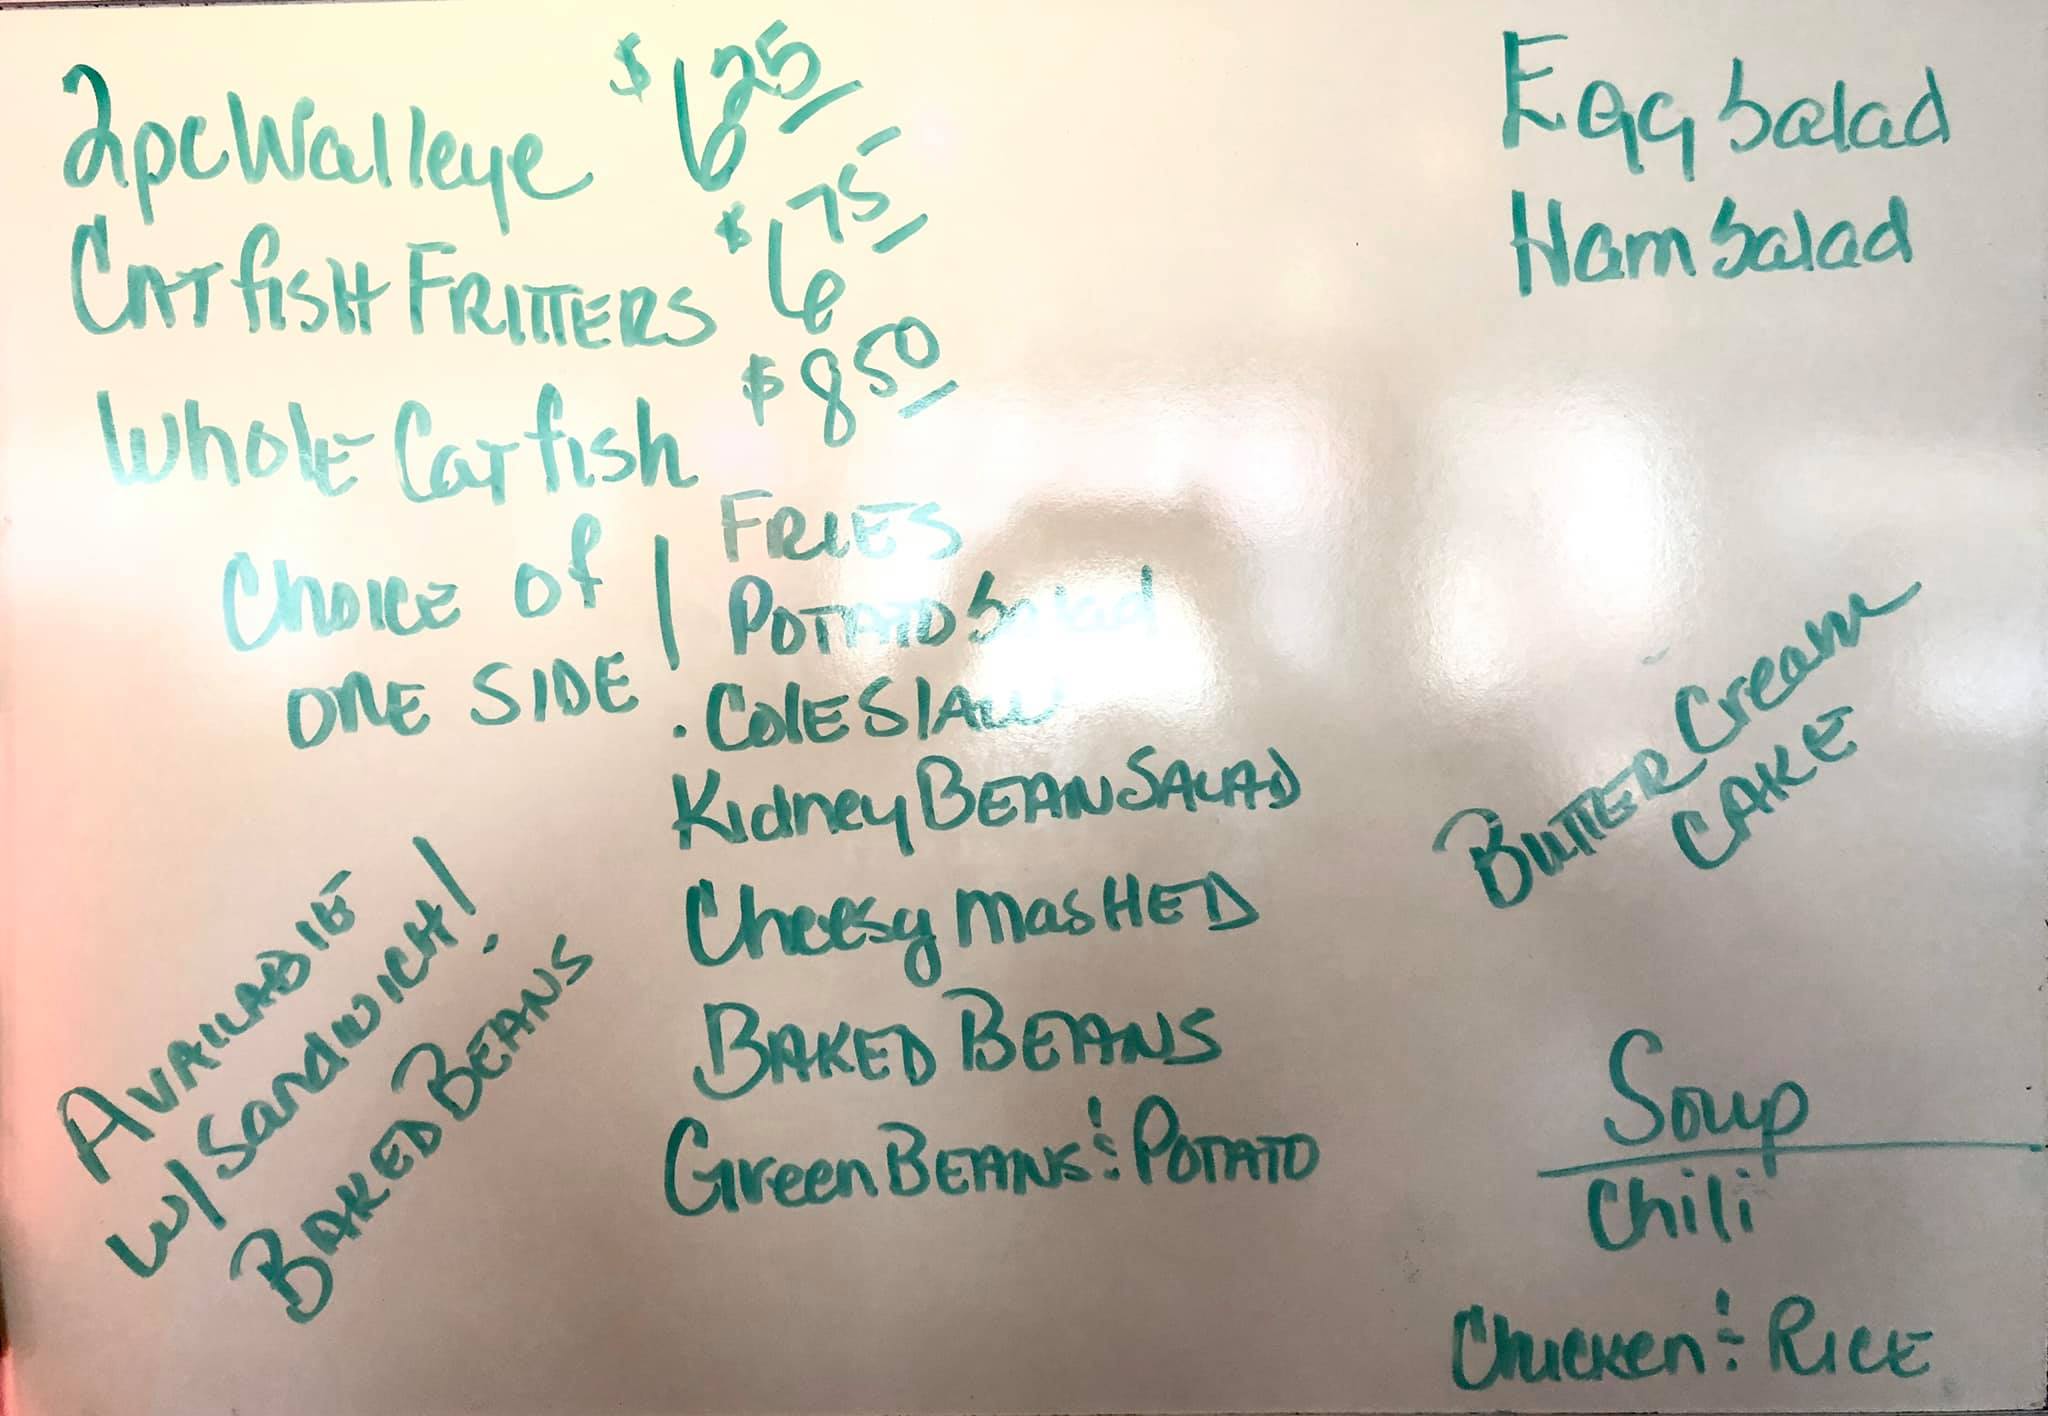 2pc Walleye $6.25
Catfish Fritters $6.75
Whole Catfish $8.50
Choice of
one side
Fries
Potato Salad
. Cole Slaw
Kidney Bean Salad
Cheesy Mashed
Baked Beans
Green Beans & Potato
Available
w/ Sandwich!
Baked Beans
Egg Salad
Ham Salad
Butter Cream
Cake
Soup
Chili
Chicken & Rice